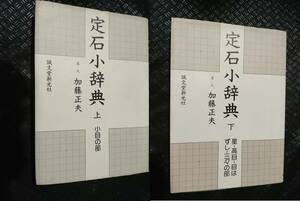 定石小辞典
上
小目の部
名人 加藤正夫
誠文堂新光社
定石小辞典
下
星・高目・目は
ずし・三々の部
名人 加藤正夫
誠文堂新光社